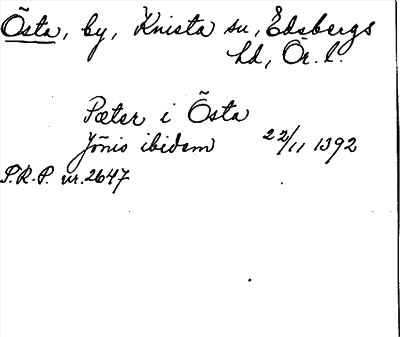 Östa, by, Knista sn, Edsbergs
hd, Ör. l.
Pæter i Östa
Jönis ibidem 22/11 1392
P.R.P. nr. 2647